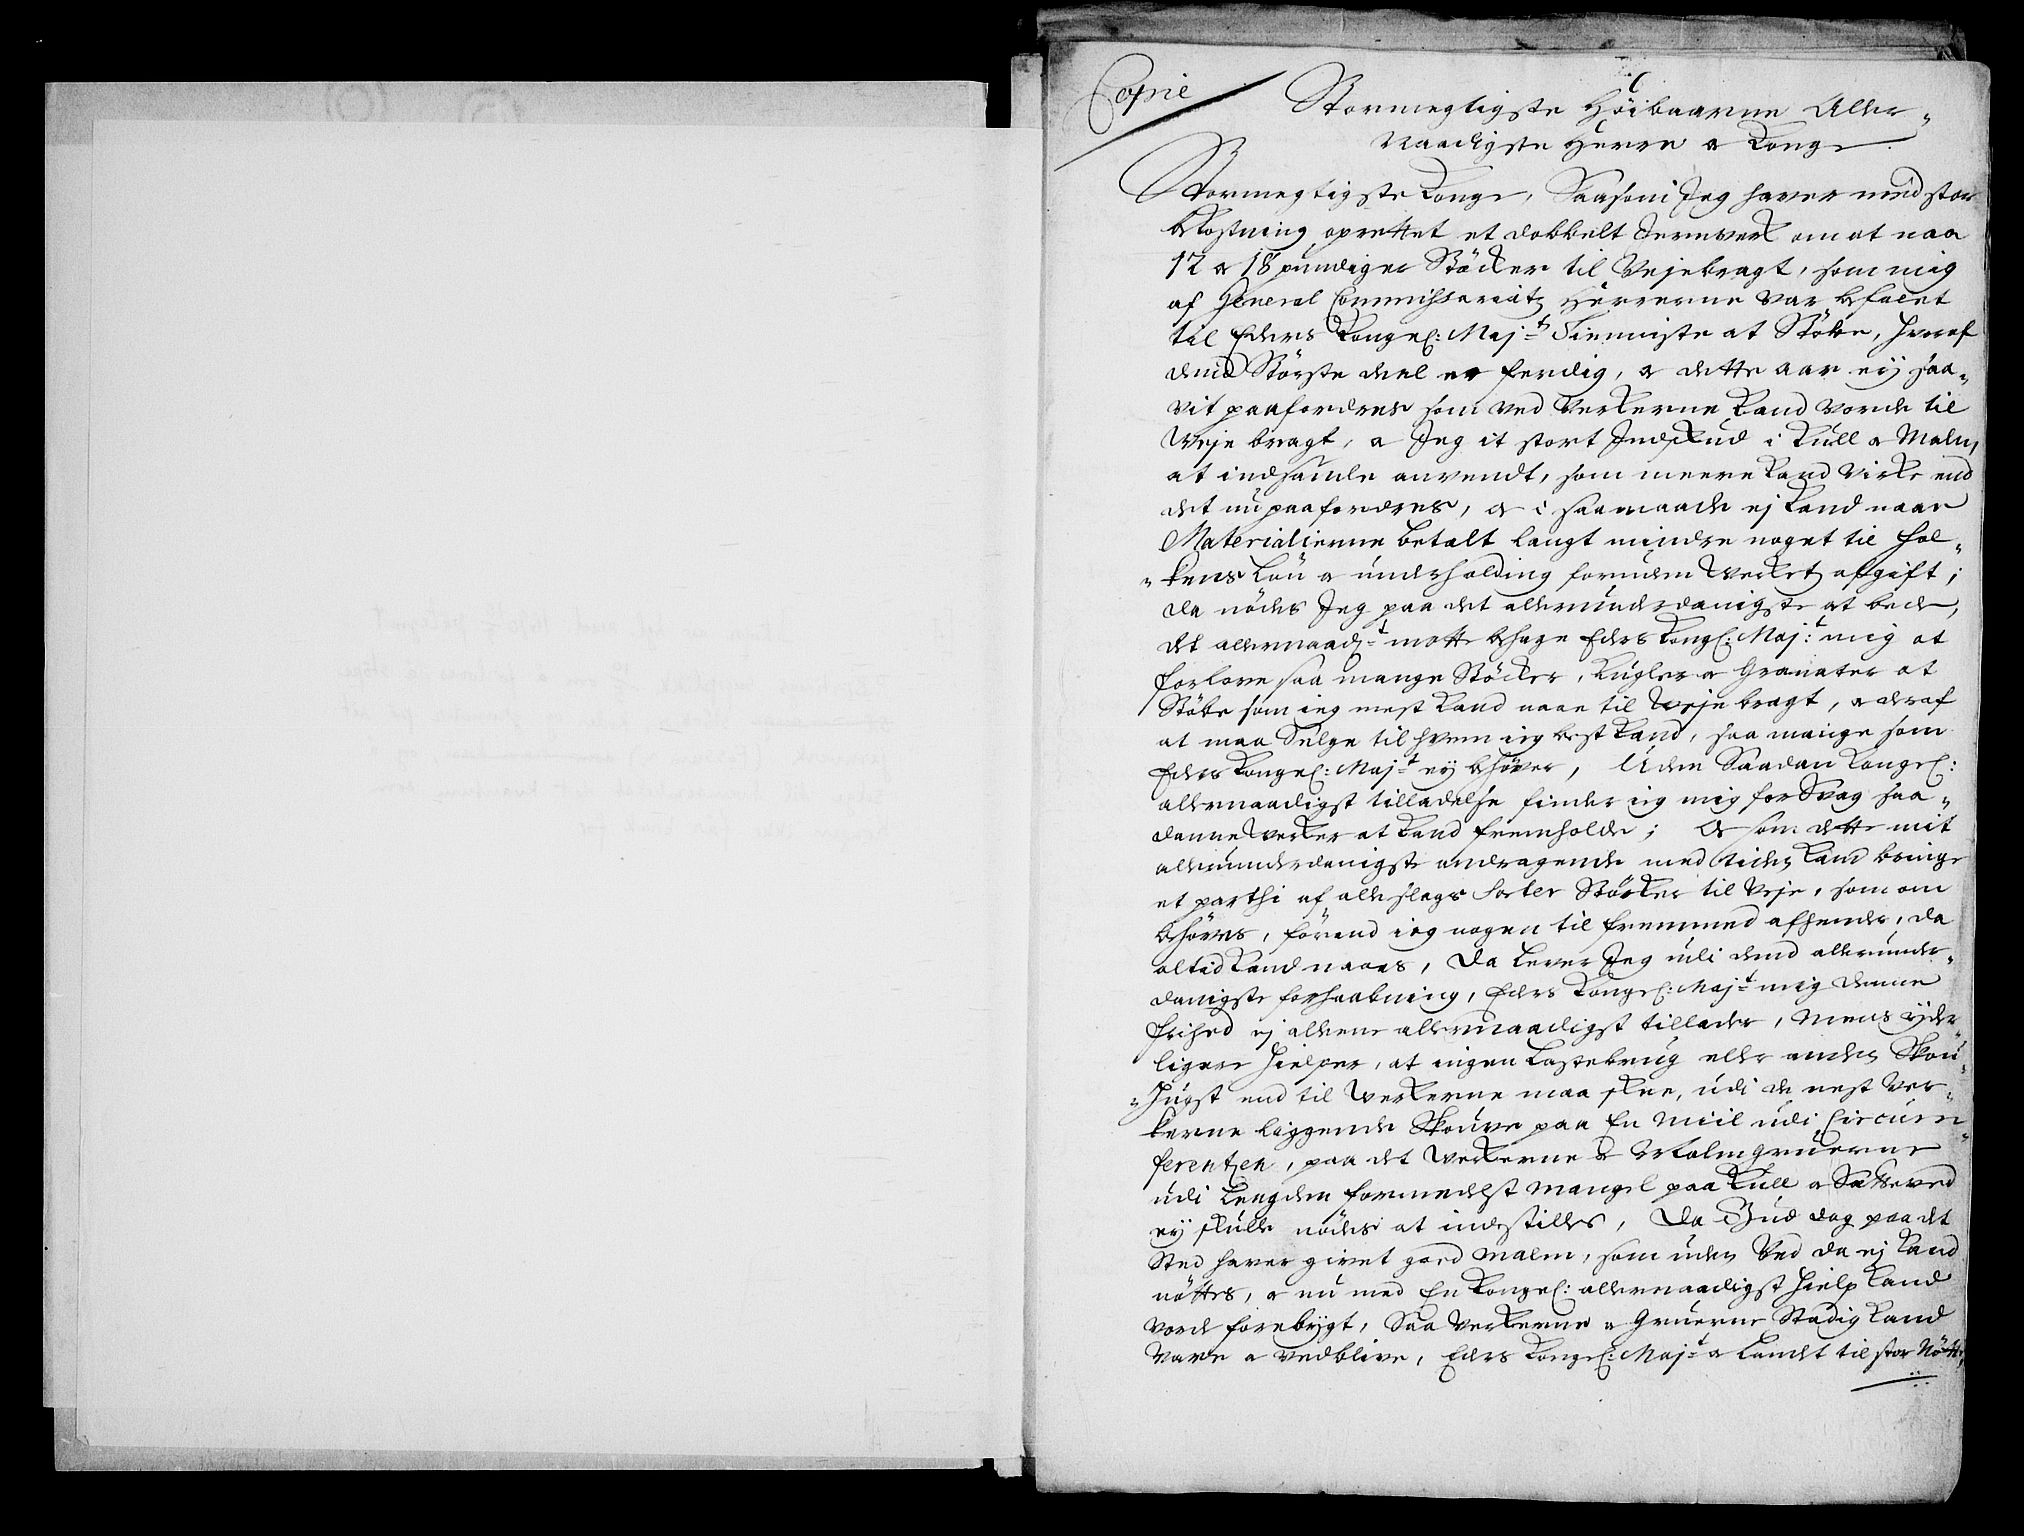 Copie
Stormegtigste Höibaarne Aller„
Naadigste Herre & Konge
Stormegtigste Konge, Saasom Jeg haver med stor
bekostning oprettet et dobbelt Jernverk om at naa
12 & 18 pundiger Stöcker til Vejebragt, som mig
af General Commissariatz Herrerne var befalet
til Eders Kongel: Maj:ᵗ Tienniste at Stöbe, hvoraf
dend Störste deel er ferdig, & dette aar eij saa„
vit paafordres som ved Verkerne kand vorde til
Veje bragt, & Jeg it stort Indskud i Kull & Malm,
at indsamle anvendt, som meere kand virke end
det nu paafordres, & i saamaade ej kand naae
Materialierne betalt langt mindre noget til fol„
„kens Lön & underholding foruden Verketz afgift;
da nödes Jeg paa det allerunderdanigste at bede,
det allernaad:ᵗ motte behage Eders Kongl: Maj:ᵗ mig at
forlove saa mange Stöcker, Kugler & Granater at
Stöbe som ieg mest kand naae til Veje bragt, & deraf
at maa Selge til hvem ieg best kand, saa mange som
Eders Kongel: Maj:ᵗ eij behöver, Uden Saadan Kongel:
allernaadigst tilladelse finder ieg mig for Svag saa„
danne Verker at kand fremholde; & som dette mit
allerunderdanigste andragende med tiden kand bringe
et parthi af alleslags Sorter Stöcker til Veje, som om
behöves, förend ieg nogen til fremmed afhender, da
altid kand naaes, Da lever Jeg udi dend allerunder„
danigste forhaabning, Eders Kongel: Maj:ᵗ mig denne
frihed ej alleene allernaadigst tillader, Mens ijder„
ligere hielper, at ingen Lastebrug eller anden Skou„
„Hugst end til Verkerne maa skee, udi de nest Ver„
kerne liggende Skouve paa En Miil udi Circum„
ferentzen, paa det Verkerne & Malmgruerne
udi Lengden formedelst mangel paa Kull & Setteved
eij skulle nödes at indstilles, Da Gud dog paa det
Sted haver givet goed Malm, som uden Ved da ej kand
nöttes, & nu med En Kongel: allernaadigst hielp kand
vorde forebygt, Saa Verkerne & Gruerne Stadig kand
vare & vedblive, Eders Kongel: Maj:ᵗ & Landet til stor Nötte,